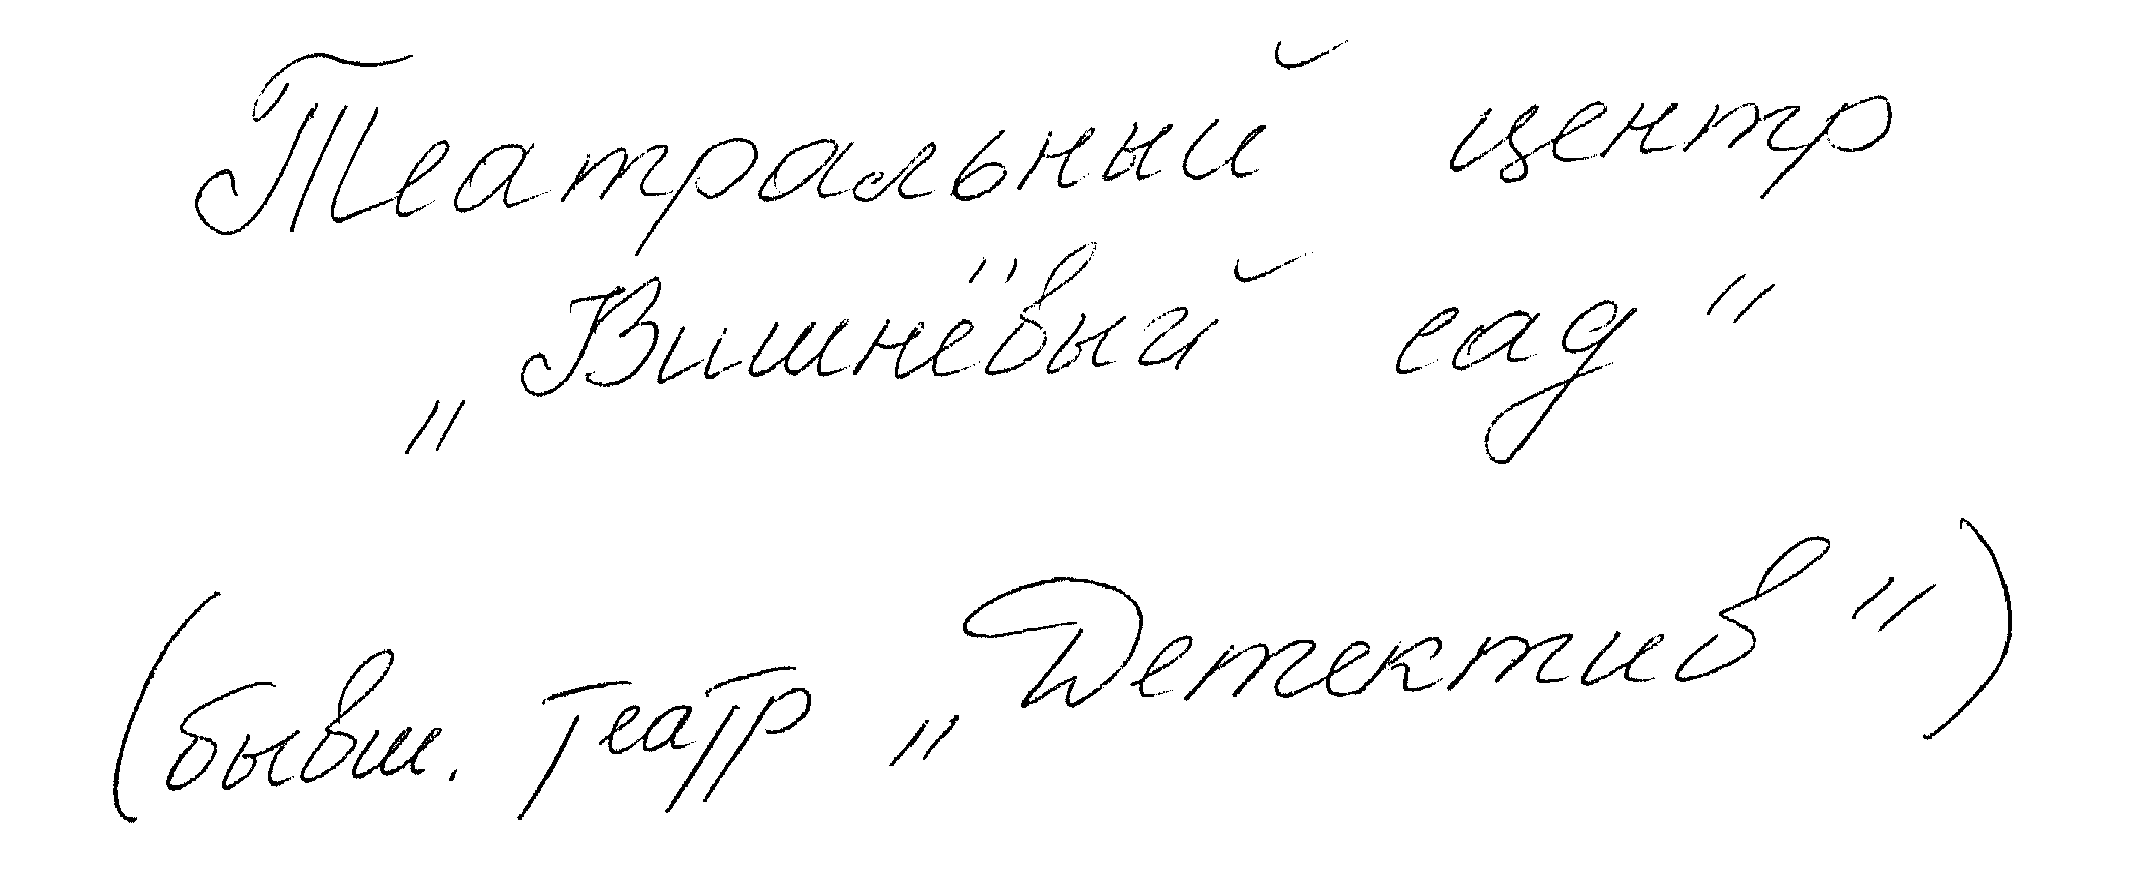 Театральный центр
„Вишнёвый сад"
(бывш. театр „Детектив")